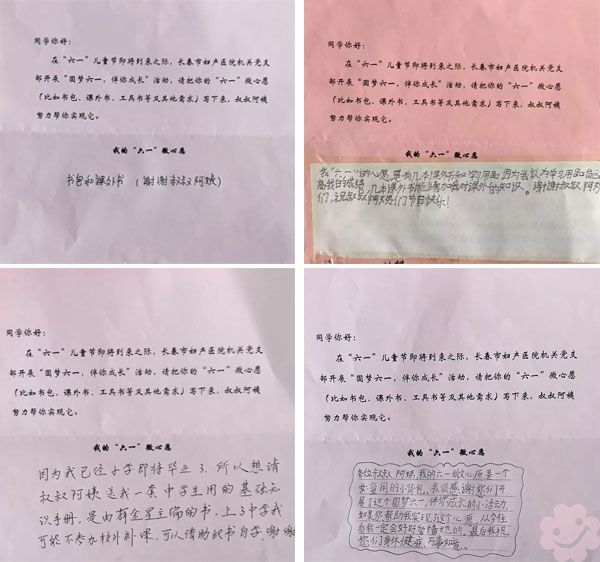 同学你好：
在“六一”儿童节即将到来之际，长春市妇产医院机关党支
部开展“圆梦六一，伴你成长”活动，请把你的“六一”微心愿
（比如书包、课外书、工具书等及其他需求）写下来，叔叔阿姨
努力帮你实现它。
我的“六一”微心愿
书包和课外书 （谢谢叔叔阿姨）
同学你好：
在“六一”儿童节即将到来之际，长春市妇产医院机关党支
部开展“圆梦六一，伴你成长”活动，请把你的“六一”微心愿
（比如书包、课外书、工具书等及其他需求）写下来，叔叔阿姨
努力帮你实现它。
我的“六一”微心愿
我“六一”的心愿，是有几本课外书和学习用品，因为我认为学习用品能提
高我的成绩，几本课外书能增加我对课外的知识。谢谢叔叔阿姨
们，祝叔叔阿姨们节日快乐！
同学你好：
在“六一”儿童节即将到来之际，长春市妇产医院机关党支
部开展“圆梦六一，伴你成长”活动，请把你的“六一”微心愿
（比如书包、课外书、工具书等及其他需求）写下来，叔叔阿姨
努力帮你实现它。
我的“六一”微心愿
因为我已经小学即将毕业了，所以想请
叔叔阿姨送我一套中学生用的基础知
识手册，是由薛金星主编的书，上了中学我
可能不参加校外补课，可以借助此书自学，谢谢
同学你好：
在“六一”儿童节即将到来之际，长春市妇产医院机关党支
部开展“圆梦六一，伴你成长”活动，请把你的“六一”微心愿
（比如书包、课外书、工具书等及其他需求）写下来，叔叔阿姨
努力帮你实现它。
我的“六一”微心愿
各位叔叔阿姨，我的六一的心愿是一个
女童用的小背包，我很感谢你们开
展了这个圆梦六一，伴你成长的小活动，
如果您帮助我实现了这个心愿，从今往
后我一定会好好的。最后我祝
你们身体健康，万事如意。